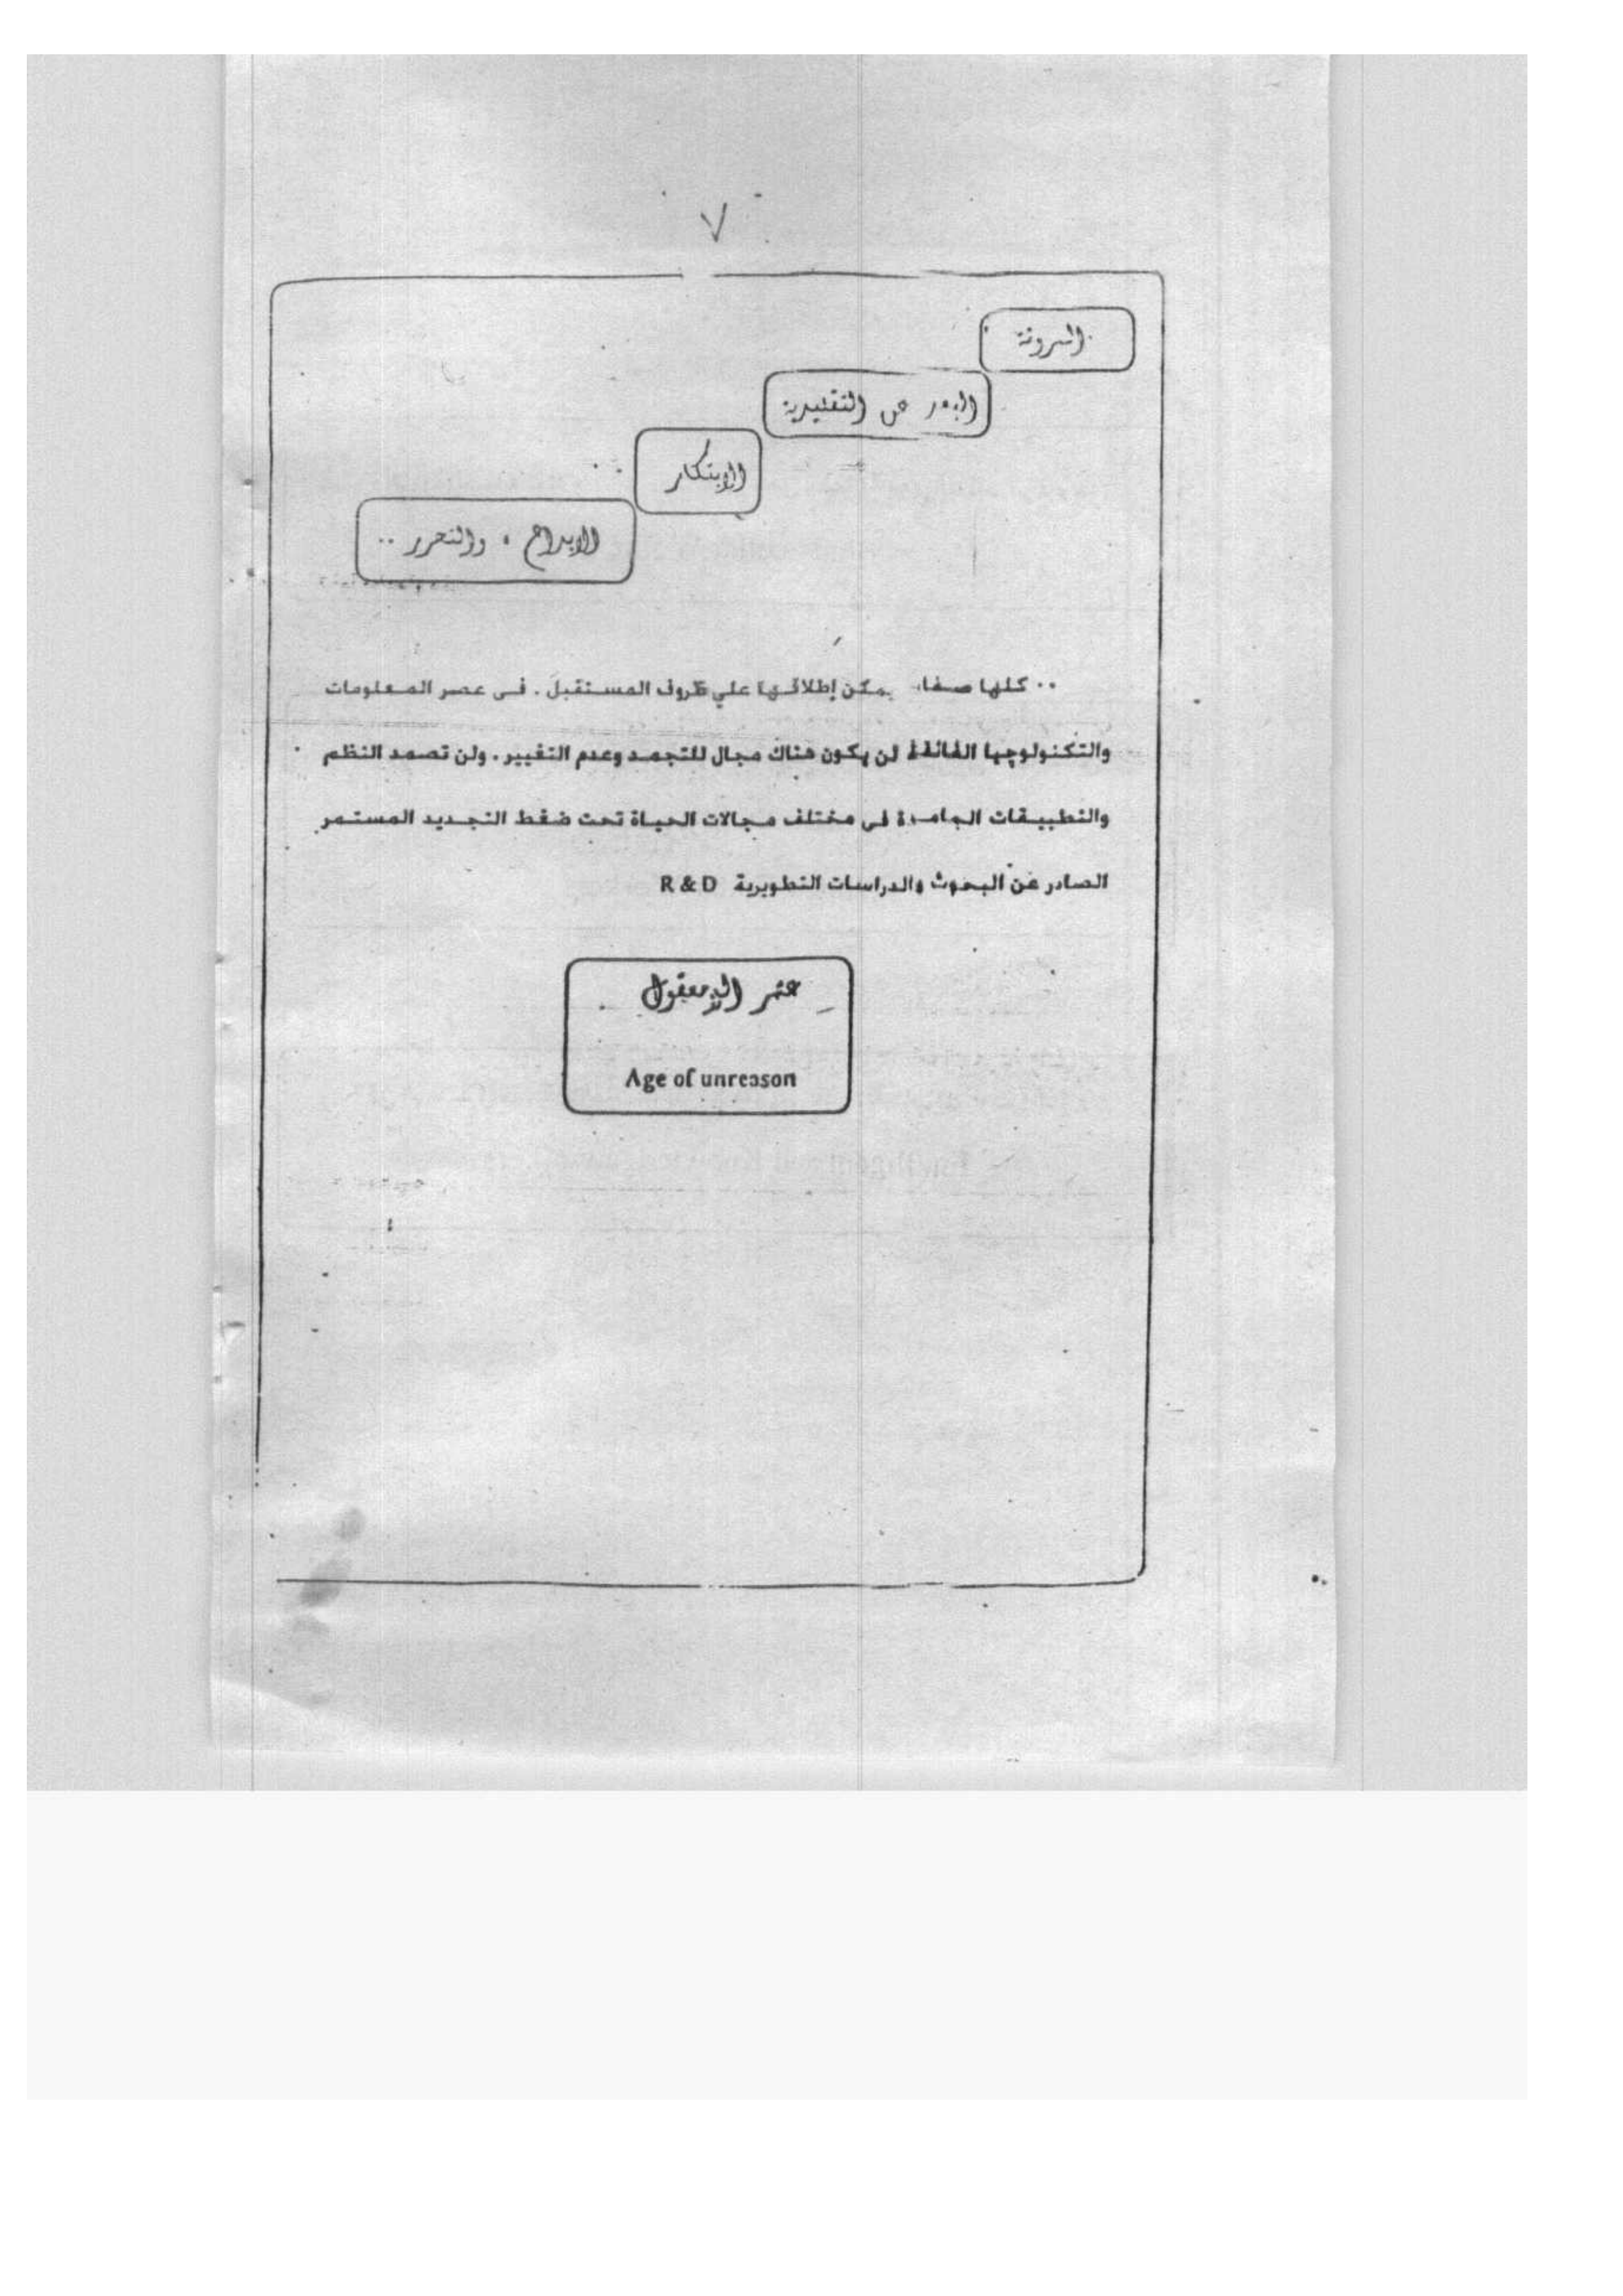 ٧
المرونة
البعد عن التقليدية
الابتكار
الإبداع ، والتحرر ..
.. كلها صفات يمكن إطلاقها علي ظروف المستقبل . فى عصر المعلومات
والتكنولوجيا الفائقة لن يكون هناك مجال للتجمد وعدم التغيير . ولن تصمد النظم
والتطبيقات الجامدة فى مختلف مجالات الحياة تحت ضغط التجديد المستمر
الصادر عن البحوث والدراسات التطويرية R & D
عصر اللامعقول
Age of unreason